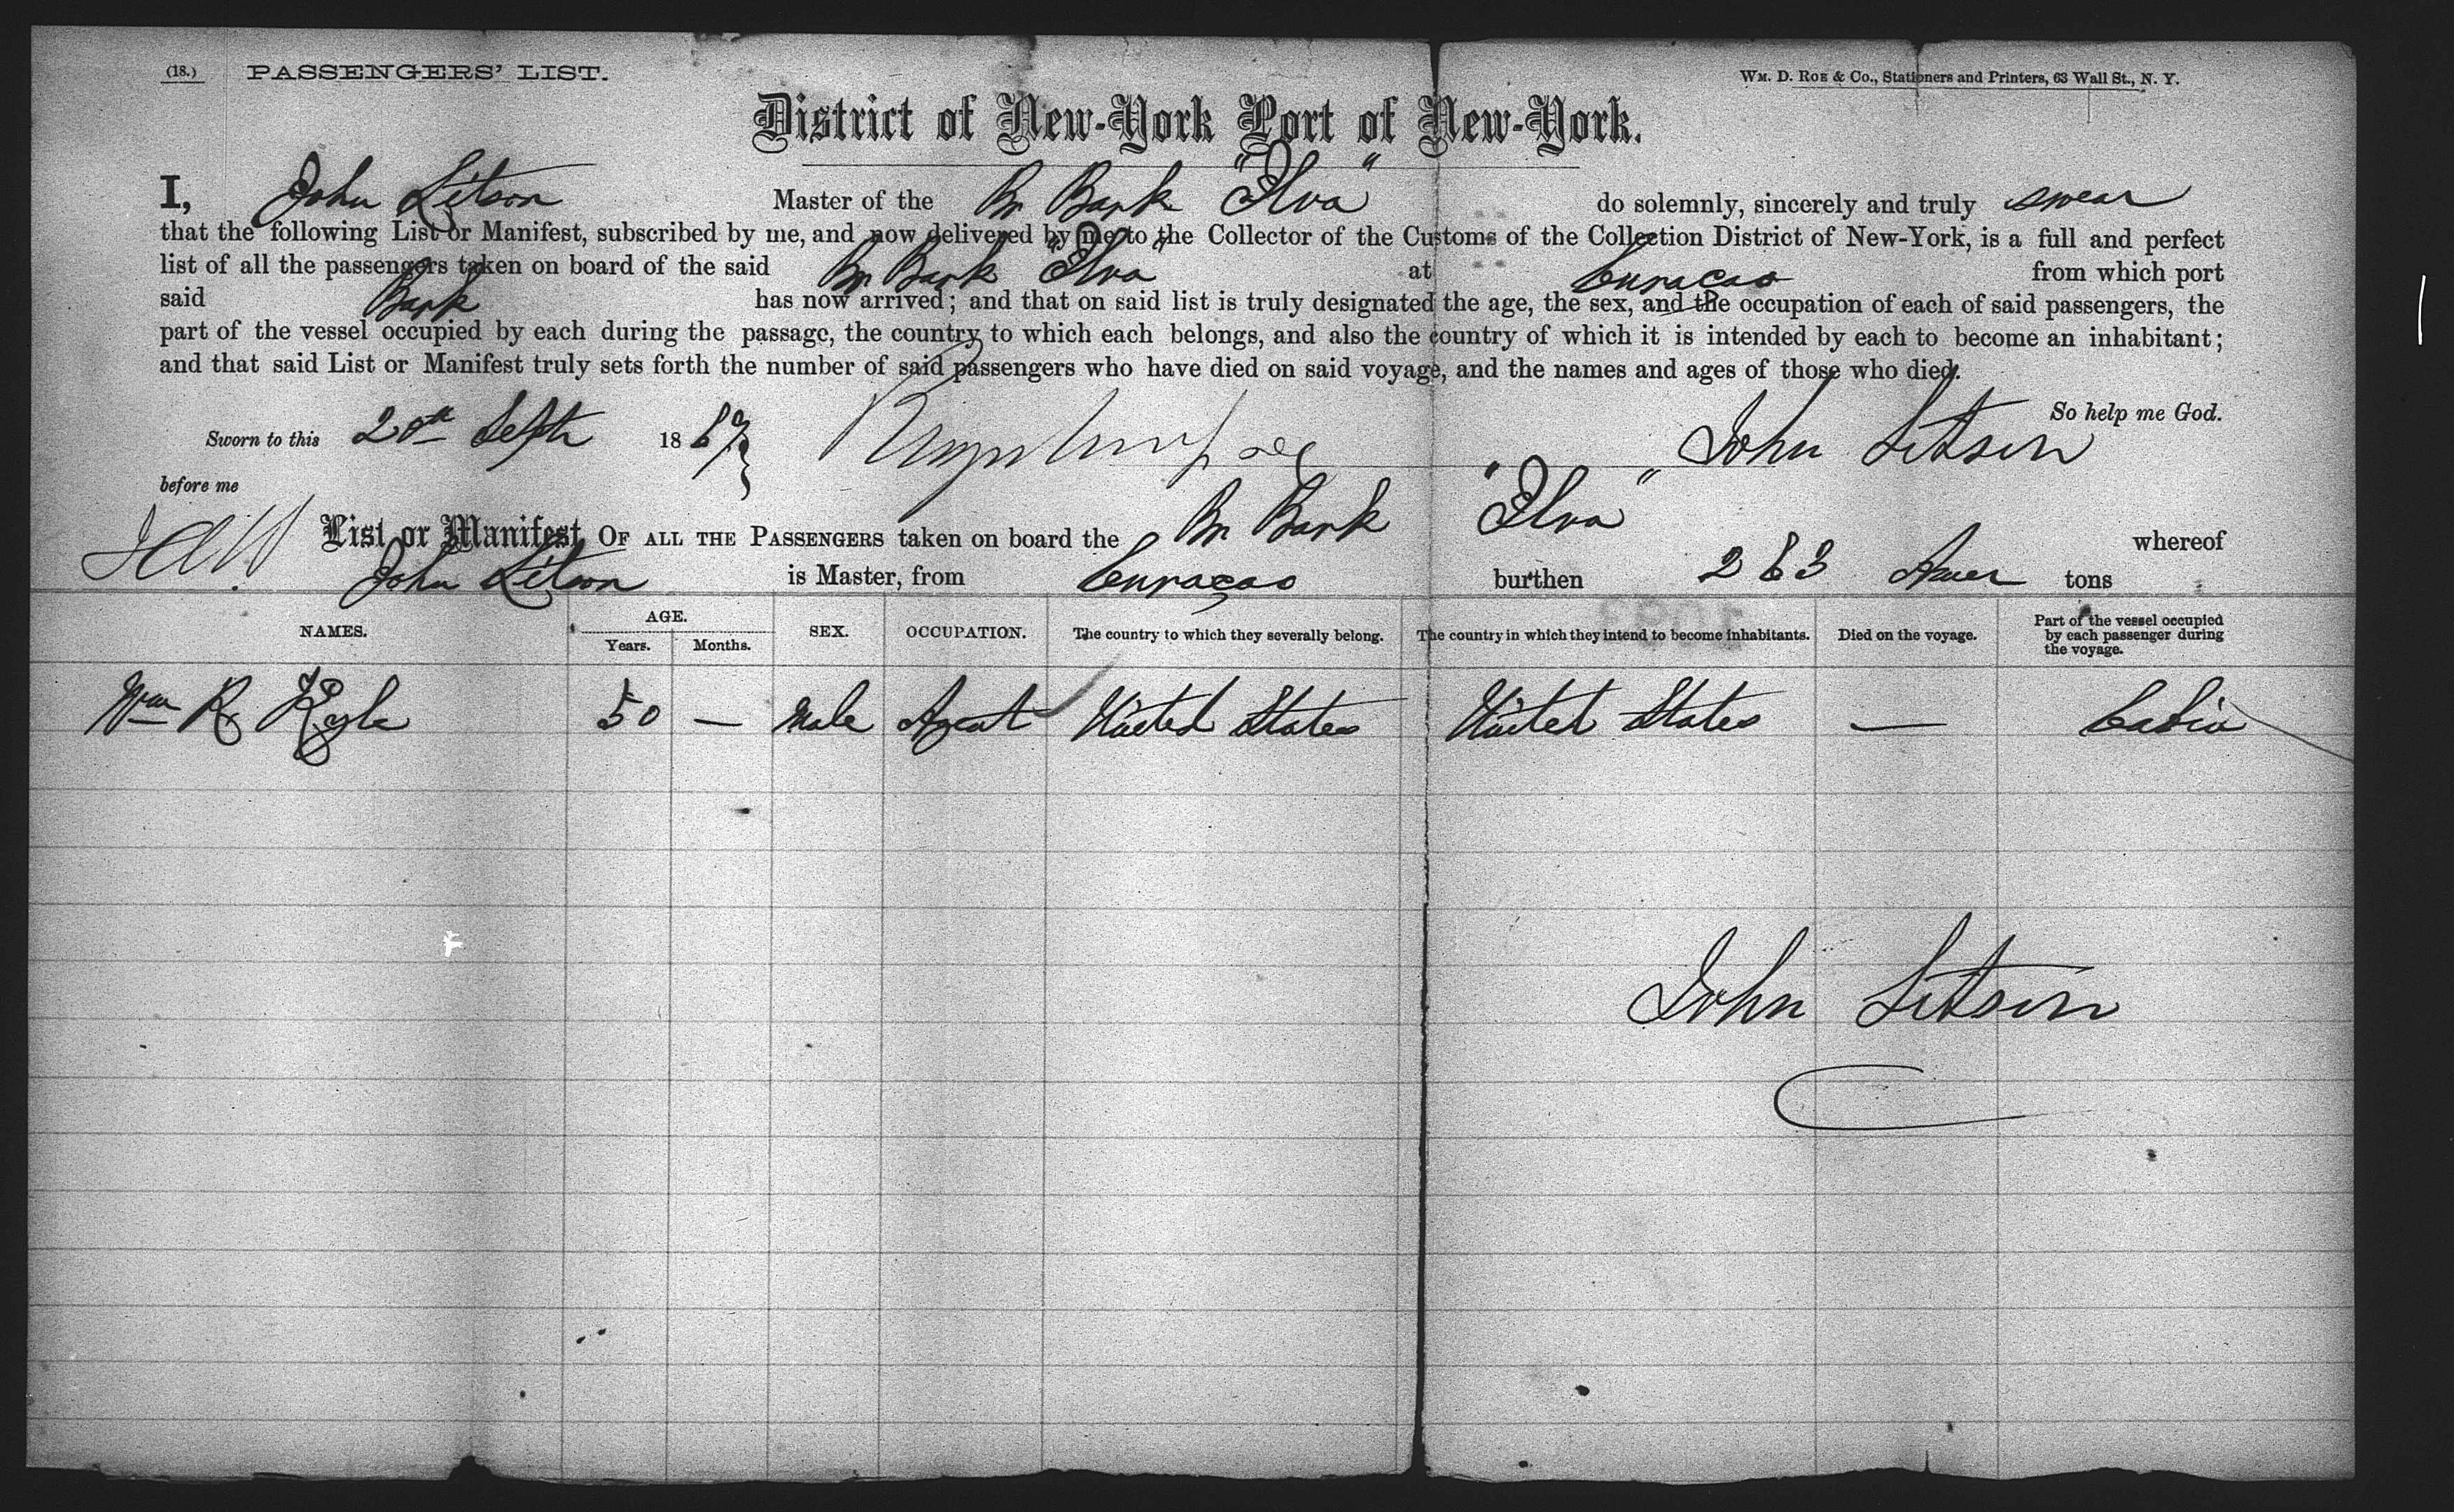 (18.) PASSENGERS' LIST.
WM. D. ROE & Co., Stationers and Printers, 63 Wall St., N. Y.
District of New-York Port of New-York.
I, John Litson Master of the Br Bark "Elva" do solemnly, sincerely and truly swear
that the following List or Manifest, subscribed by me, and now delivered by me to the Collector of the Customs of the Collection District of New-York, is a full and perfect
list of all the passengers taken on board of the said Br Bark "Elva" at Curacao from which port
said Bark has now arrived; and that on said list is truly designated the age, the sex, and the occupation of each of said passengers, the
part of the vessel occupied by each during the passage, the country to which each belongs, and also the country of which it is intended by each to become an inhabitant;
and that said List or Manifest truly sets forth the number of said passengers who have died on said voyage, and the names and ages of those who died.
So help me God.
Sworn to this 20th Septr 18 John Litson
before me
List or Manifest OF ALL THE PASSENGERS taken on board the Br Bark "Elva" whereof
John Litson is Master, from Curaçao burthen 263 Amer tons
NAMES. AGE. Years. Months. SEX. OCCUPATION. The country to which they severally belong. The country in which they intend to become inhabitants. Died on the voyage. Part of the vessel occupied by each passenger during the voyage.
Wm R Kyle 50 — Male Agent United States United States — Cabin
John Litson